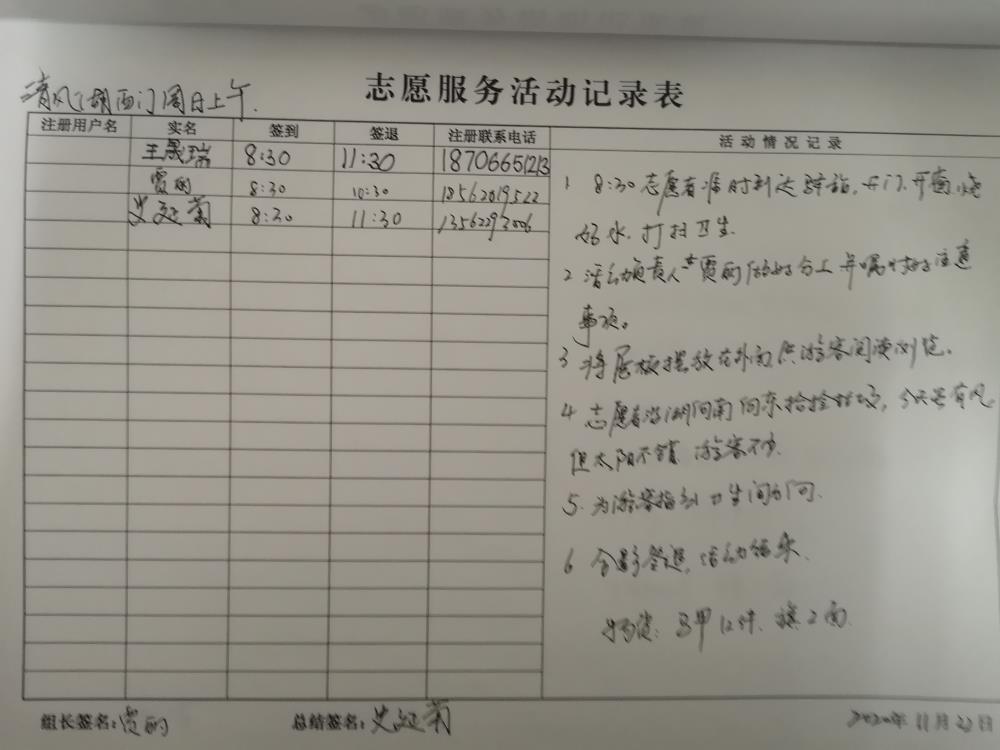 志愿服务活动记录表
清风湖西门周日上午.
注册用户名 实名 签到 签退 注册联系电话 活动情况记录
王晟瑞 8:30 11:30 18706651213
贾丽 8:30 10:30 18562019522
史延菊 8:30 11:30 13562293006
1 8:30志愿者准时到达驿站,开门,开窗,烧
好水,打扫卫生.
2 活动负责人 贾丽做好分工并嘱咐好注意
事项。
3 将展板摆放在外面供游客阅读浏览.
4 志愿者沿湖向南向东捡拾垃圾,今天虽有风
但太阳不错 游客不少.
5. 为游客指引卫生间方向.
6 合影签退,活动结束.
物资:马甲12件.旗2面.
组长签名:贾丽 总结签名:史延菊 2020年11月22日